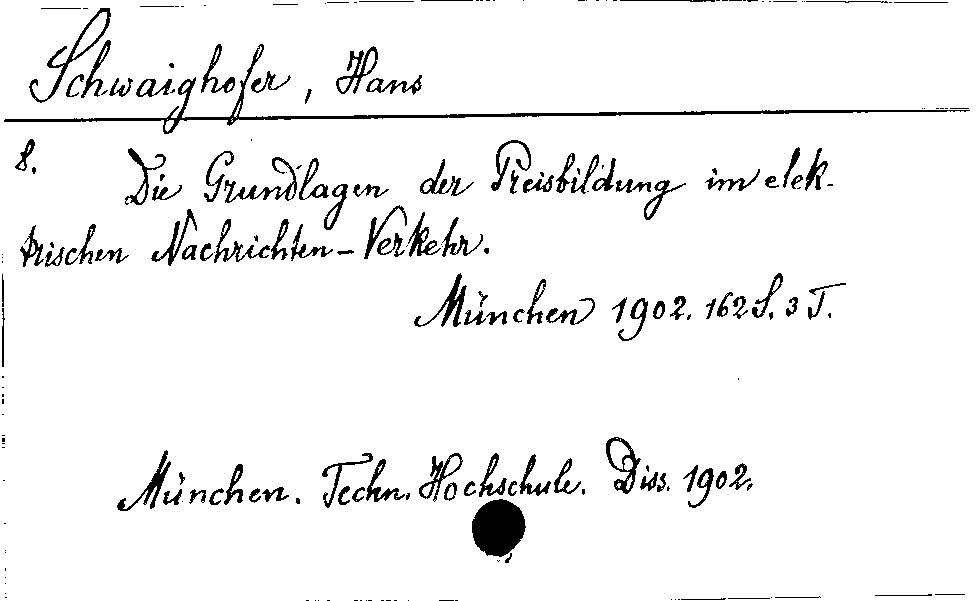 Schwaighofer, Hans
8.
Die Grundlagen der Preisbildung im elek-
trischen Nachrichten-Verkehr.
München 1902. 162 S. 3 T.
München. Techn. Hochschule. Diss. 1902.